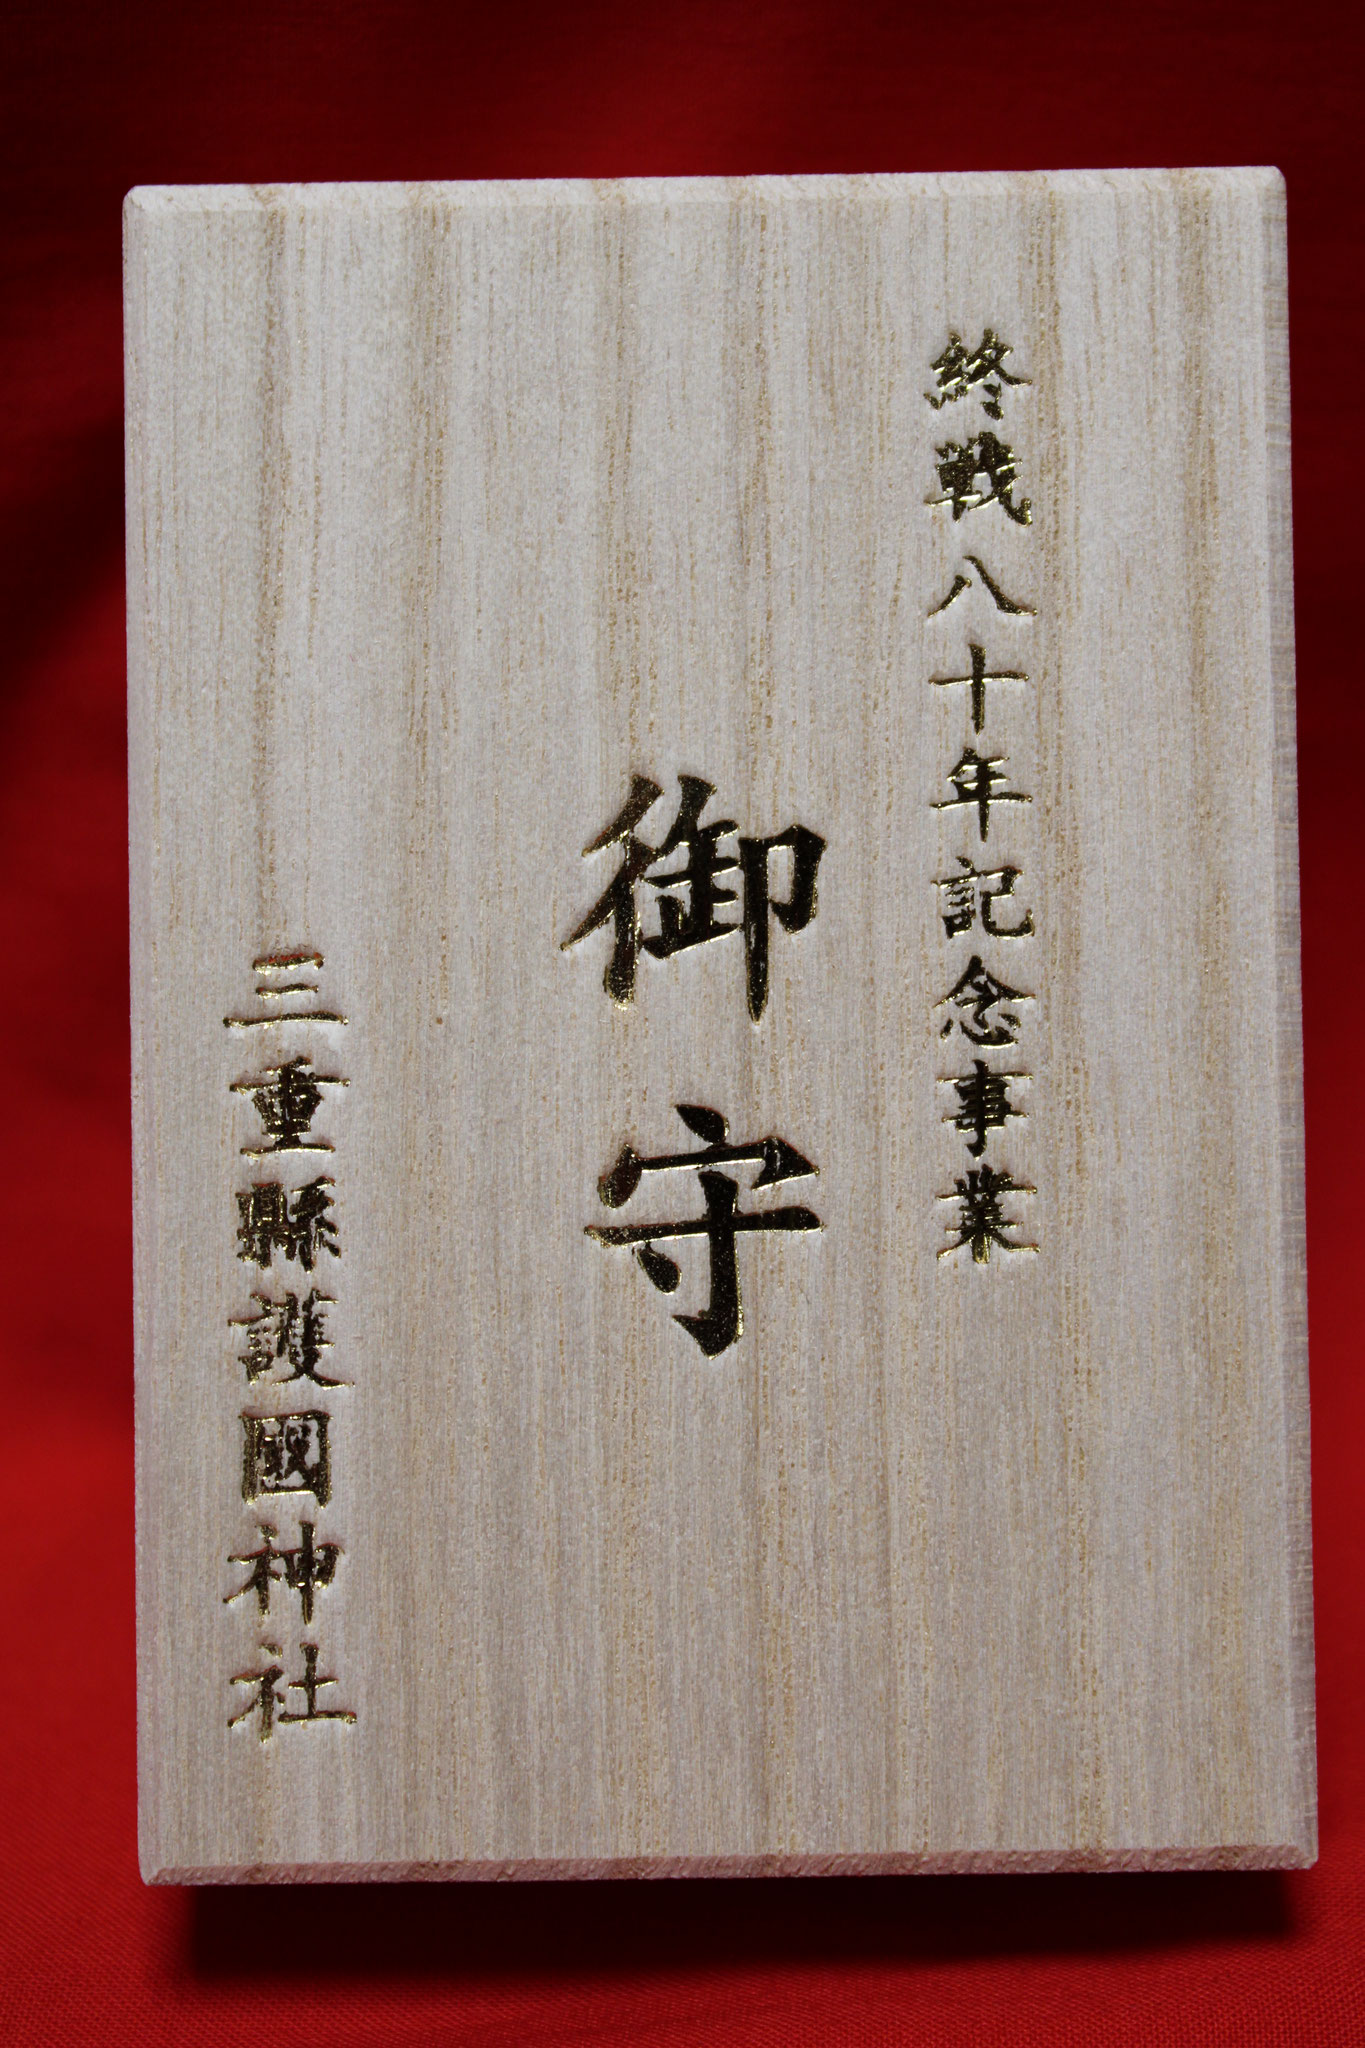 終戦八十年記念事業
御守
三重縣護國神社